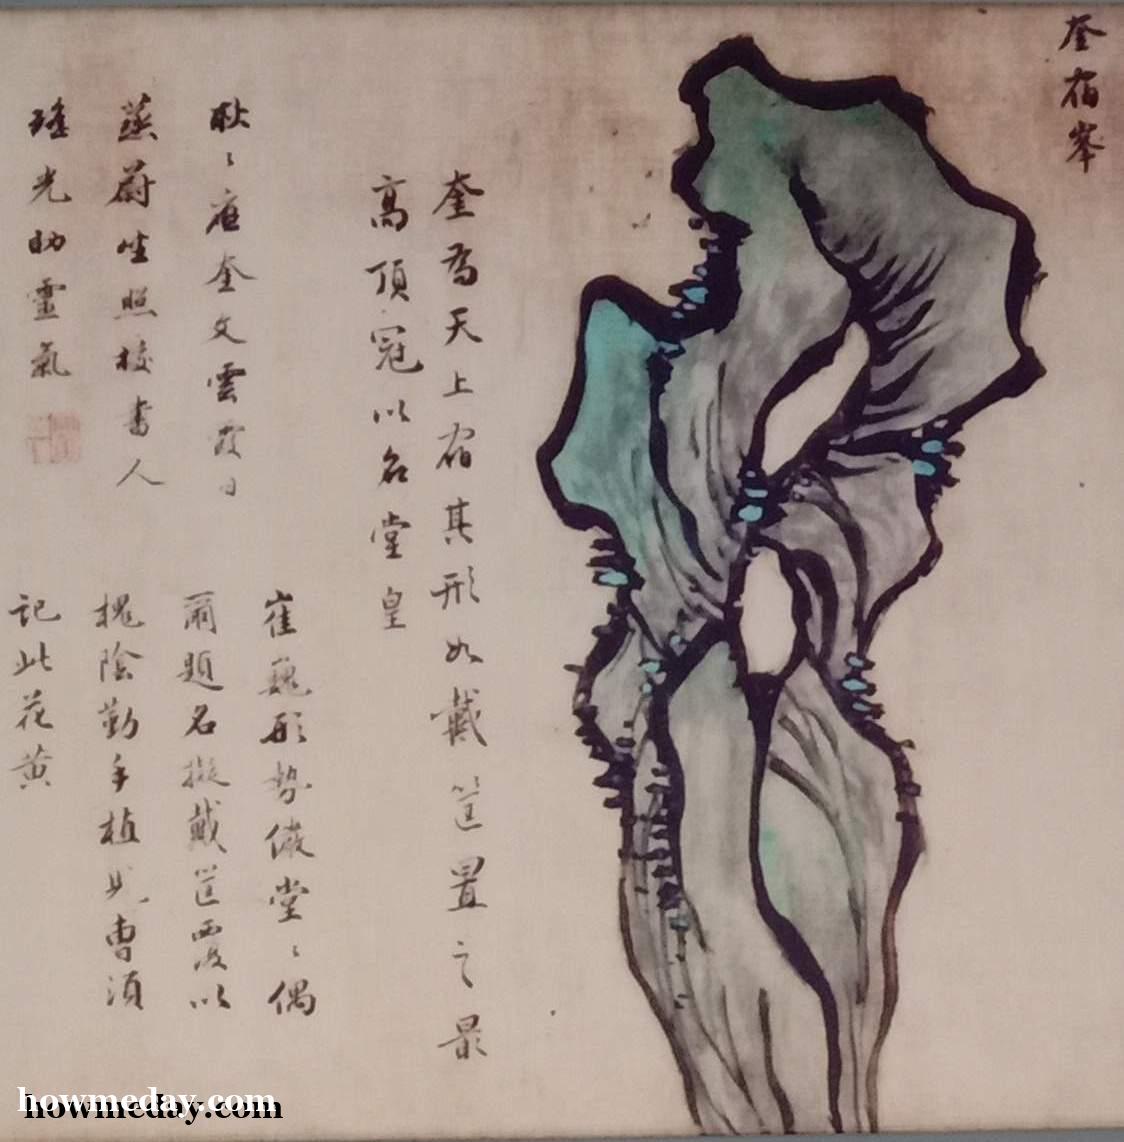 奎宿峯
奎為天上宿其形如戴筐置之最
高頂冠以名堂皇
崔巍形勢儼堂〻偶
爾題名擬戴筐覆以
槐陰勤手植兒曹須
記此花黄
耿〻應奎文雲霞日
蒸蔚坐照校書人
瑤光助靈氣
howmeday.com